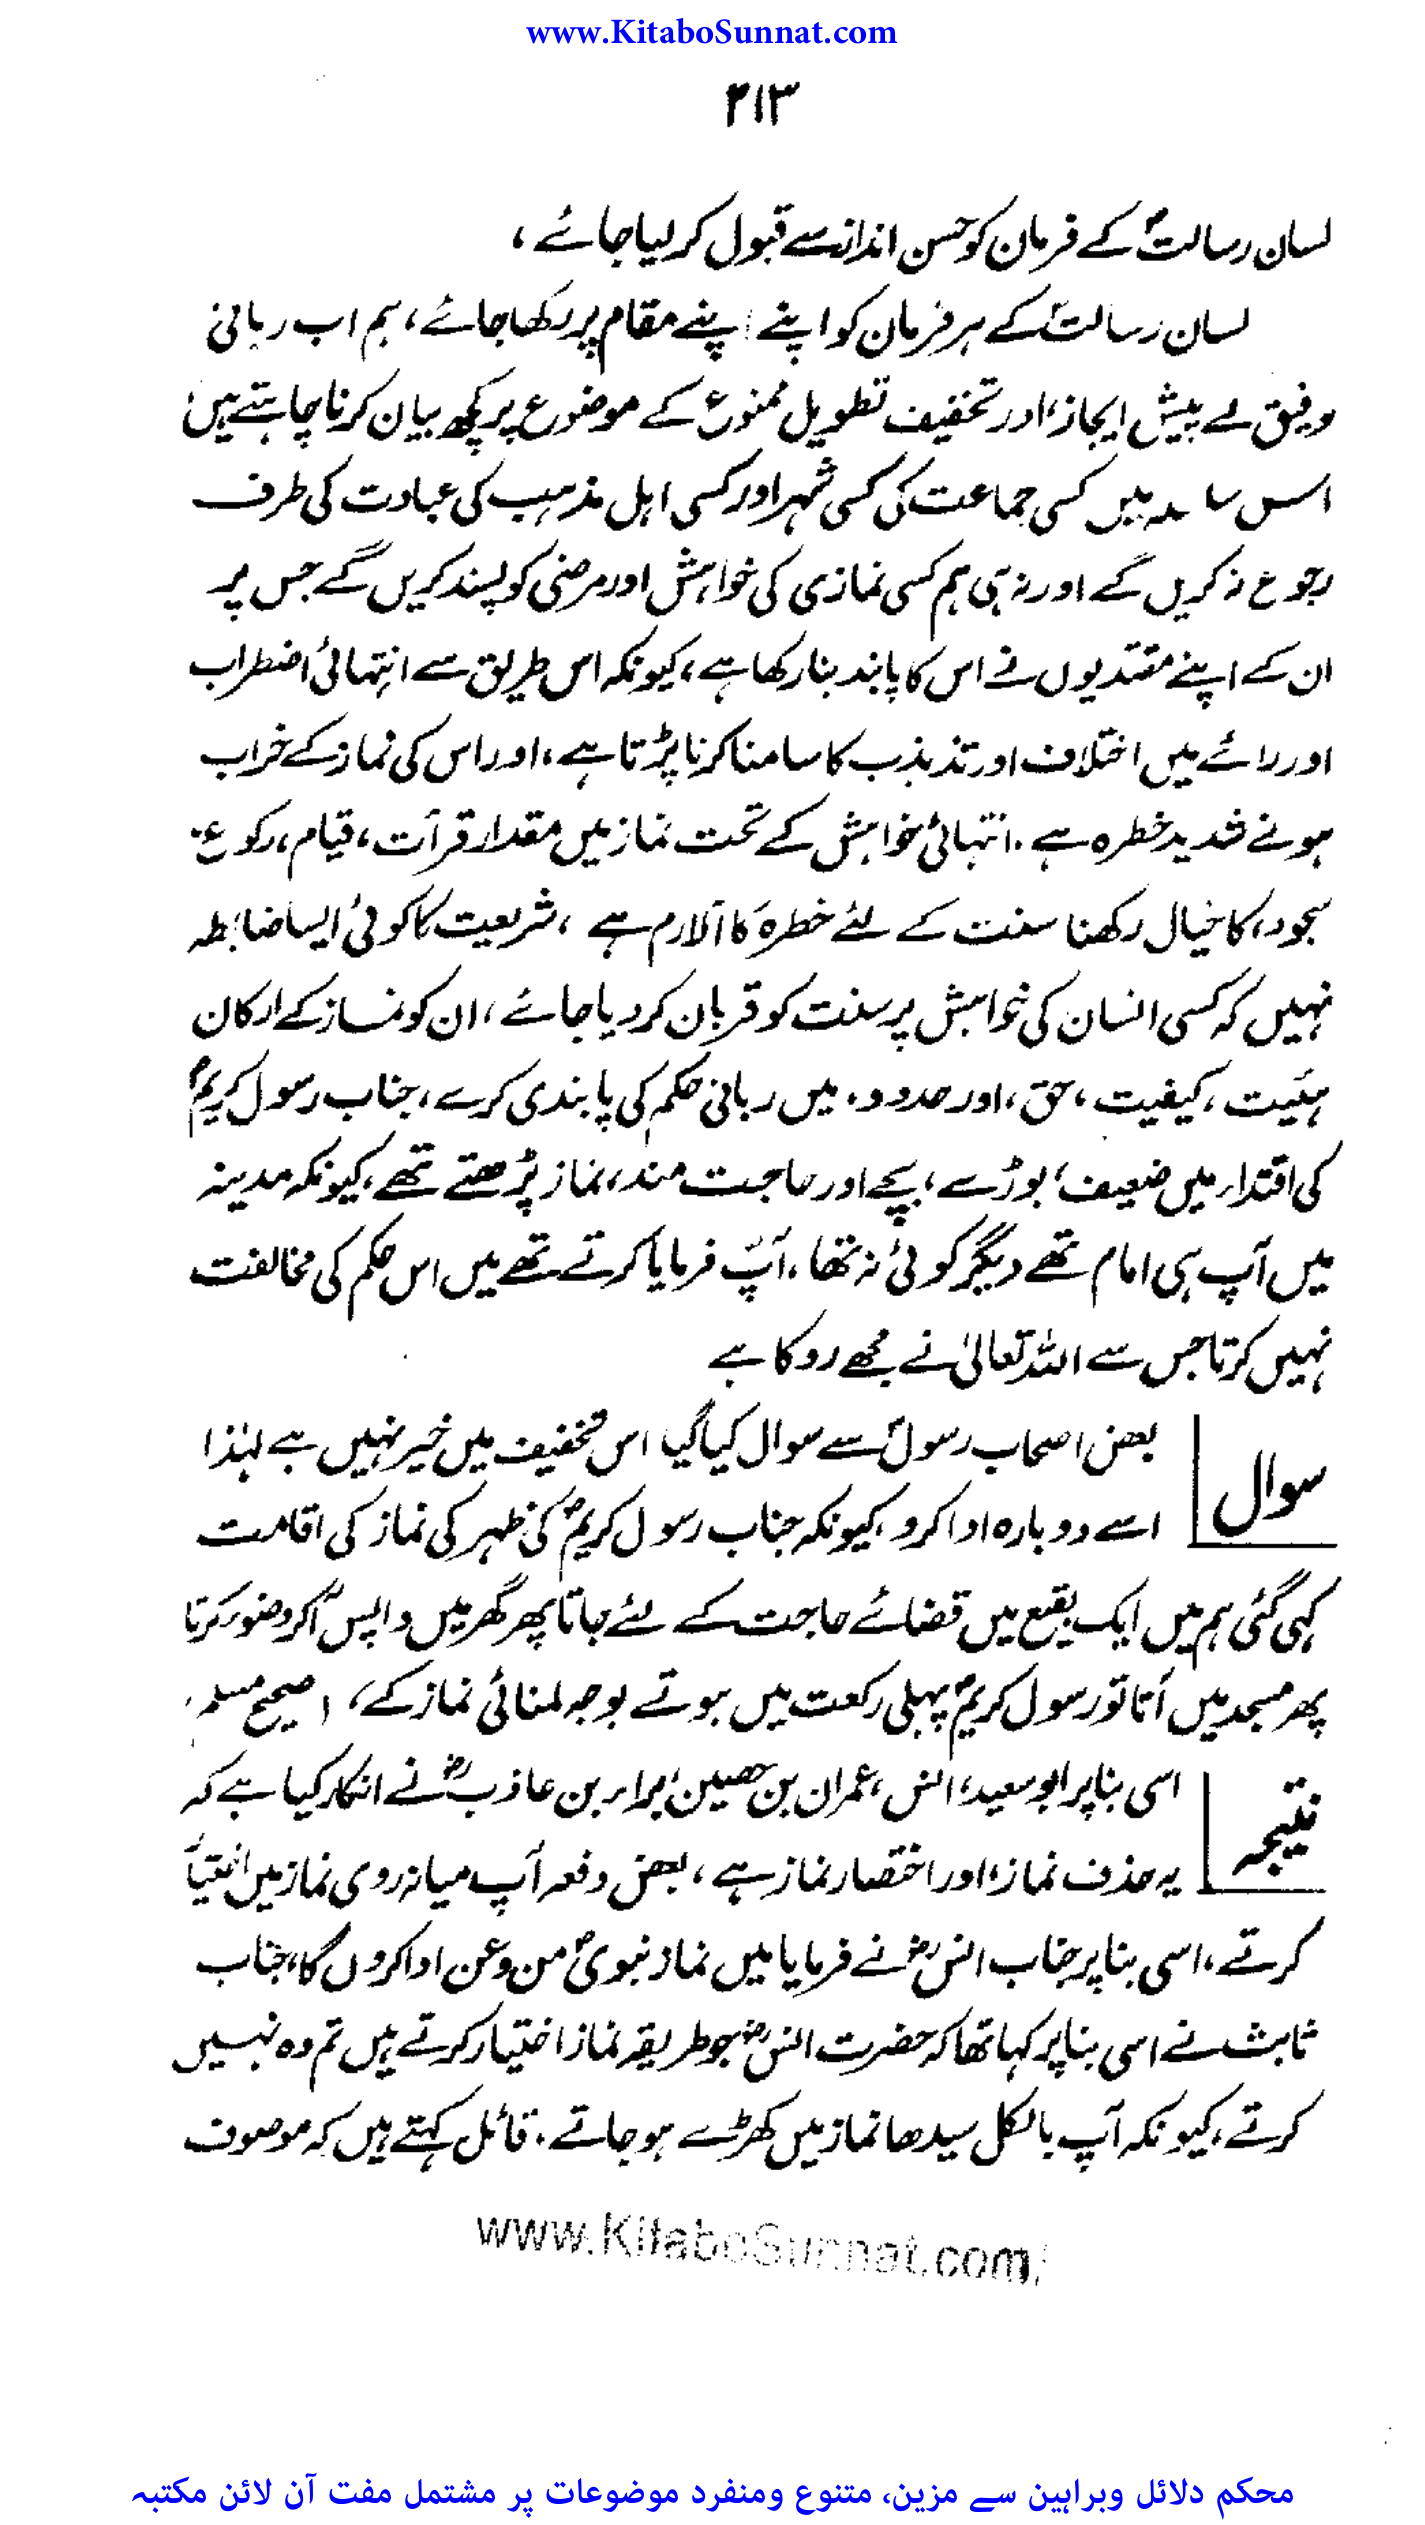 www.KitaboSunnat.com
۲۱۳
لسان رسالتؐ کے فرمان کو حسن انداز سے قبول کر لیا جائے ،
لسان رسالتؐ کے ہر فرمان کو اپنے اپنے مقام پر رکھا جائے ، ہم اب ربانی
وفیق سے پیش ایجاز، اور تخفیف تطویل ممنوع کے موضوع پر کچھ بیان کرنا چاہتے ہیں
اسس سلسلہ میں کسی جماعت کی کسی شہر اور کسی اہل مذہب کی عبادت کی طرف
رجوع نہ کریں گے اور نہ ہی ہم کسی نمازی کی خواہش اور مرضی کو پسند کریں گے جس پر
ان کے اپنے مقتدیوں نے اس کا پابند بنا رکھا ہے ، کیونکہ اس طریق سے انتہائی اضطراب
اور رائے میں اختلاف اور تذبذب کا سامنا کرنا پڑتا ہے ، اور اس کی نماز کے خراب
ہونے شدید خطرہ ہے . انتہائی خواہش کے تحت نماز میں مقدار قرآت ، قیام ، رکوع
سجود ، کا خیال رکھنا سنت کے لئے خطرہ کا آلارم ہے ، شریعت کا کوئی ایسا ضابطہ
نہیں کہ کسی انسان کی خواہش پر سنت کو قربان کر دیا جائے ، ان کو نماز کے ارکان
ہئیت ، کیفیت ، حق ، اور حدود ، میں ربانی حکم کی پابندی کرے ، جناب رسول کریمؐ
کی اقتداء میں ضعیف ، بوڑے ، بچے اور حاجت مند ، نماز پڑھتے تھے ، کیونکہ مدینہ
میں آپ ہی امام تھے دیگر کوئی نہ تھا ، آپؐ فرمایا کرتے تھے میں اس حکم کی مخالفت
نہیں کرتا جس سے اللہ تعالیٰ نے مجھے روکا ہے
سوال بعض اصحاب رسولؐ سے سوال کیا گیا اس تخفیف میں خیر نہیں ہے لہٰذا
اسے دوبارہ ادا کرو ، کیونکہ جناب رسول کریمؐ کی ظہر کی نماز کی اقامت
کہی گئی ہم میں ایک بقیع میں قضائے حاجت کے لئے جاتا پھر گھر میں واپس آکر وضو کرتا
پھر مسجد میں آتا تو رسول کریمؐ پہلی رکعت میں ہوتے بوجہ لمنائی نماز کے ، (صحیح مسلم)
نتیجہ اسی بنا پر ابو سعید ، انس ، عمران بن حصین ، براء بن عاذبؓ نے انکار کیا ہے کہ
یہ حذف نماز ، اور اختصار نماز ہے ، بعض دفعہ آپ میانہ روی نماز میں اختیا
کرتے ، اسی بنا پر جناب انسؓ نے فرمایا میں نماز نبویؐ من وعن ادا کروں گا ، جناب
ثابت نے اسی بنا پر کہا تھا کہ حضرت انسؓ جو طریقہ نماز اختیار کرتے ہیں تم وہ نہیں
کرتے ، کیونکہ آپ بالکل سیدھا نماز میں کھڑے ہو جاتے . قائل کہتے ہیں کہ موصوف
www.KitaboSunnat.com
محکم دلائل وبراہین سے مزین، متنوع ومنفرد موضوعات پر مشتمل مفت آن لائن مکتبہ